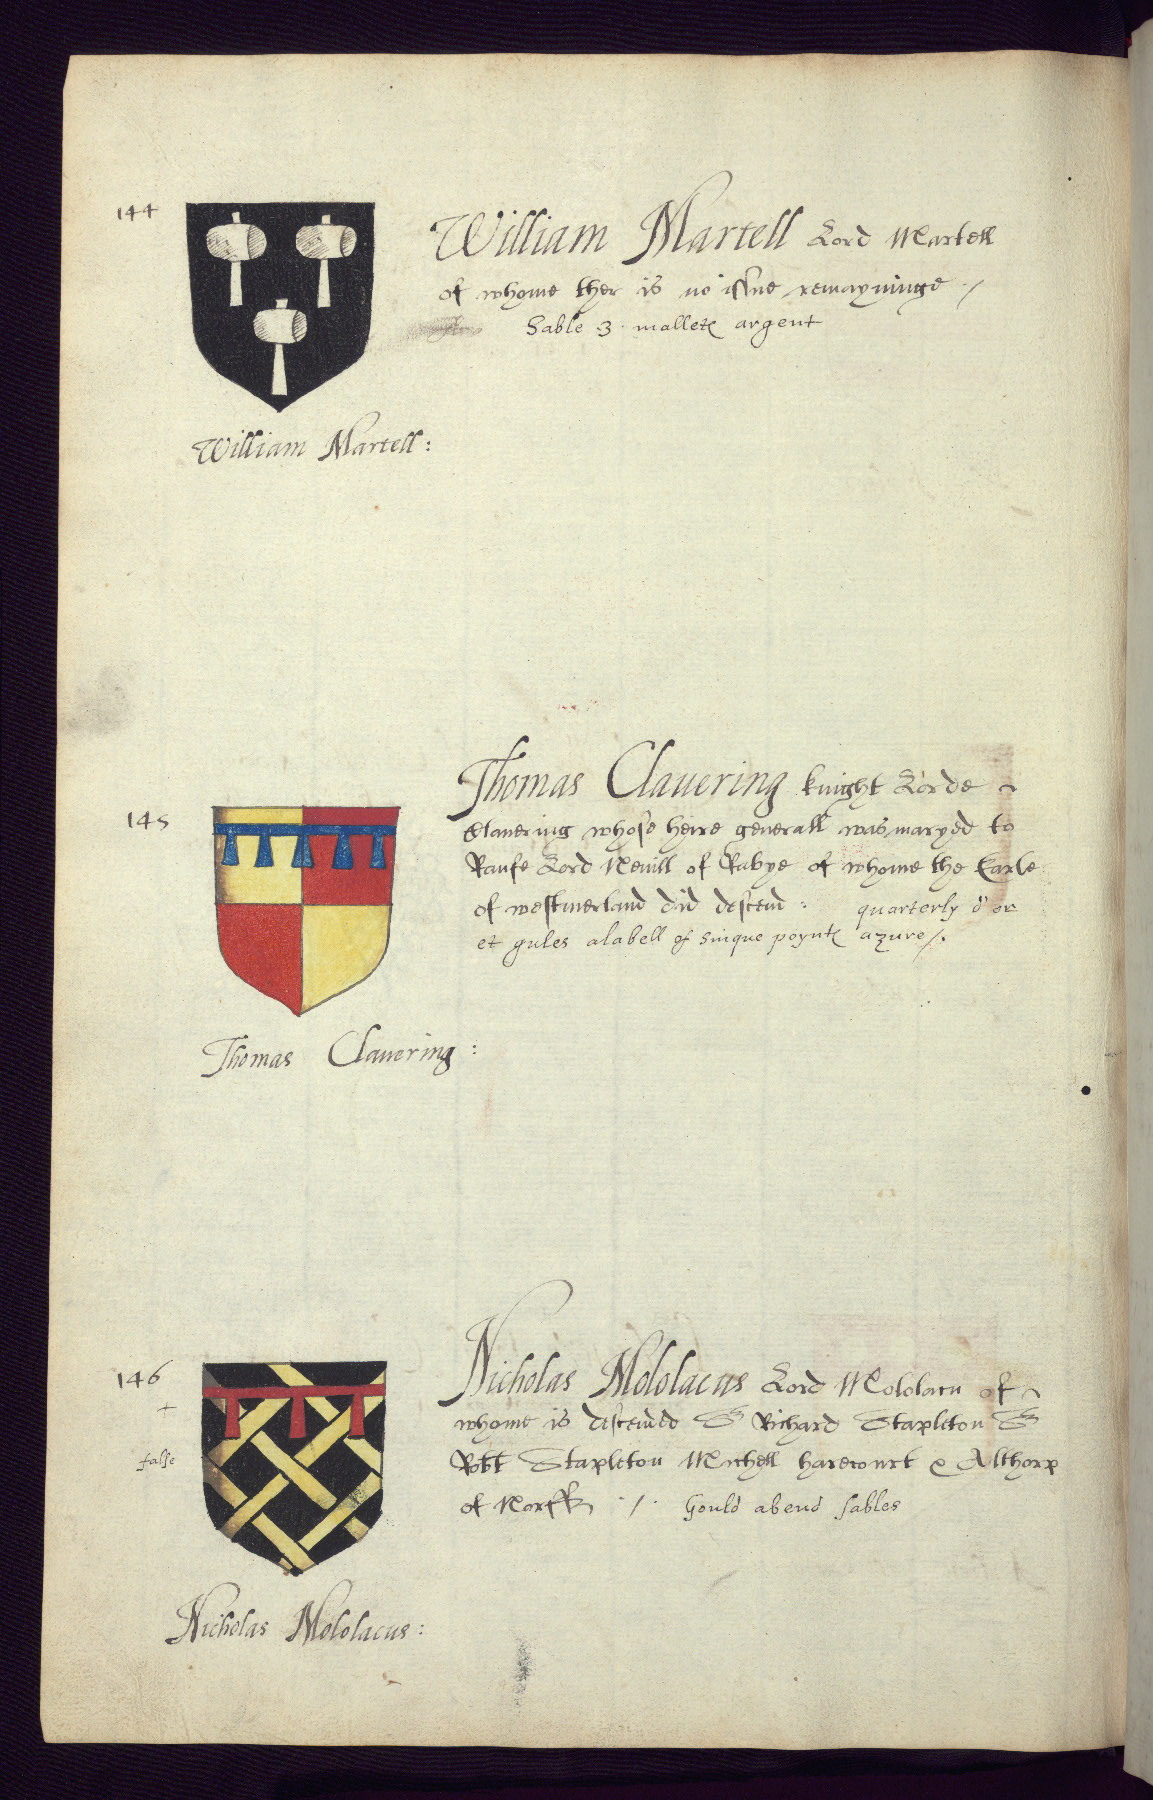 144
William Martell Lord Martell
of whome ther is no issue remayninge ./
Sable .3. mallets argent
William Martell :
145
Thomas Clauering knight Lorde
Clauering whose heire generall was maryed to
Raufe Lord Nevill of Rabye of whome the Earle
of westmerland did descend : quarterly d'or
et gules a labell of sinque poynts azure /.
Thomas Clauering :
146
+
false
Nicholas Mololacus Lord Mololacu of
whome is descended Sr Richard Stapleton Sr
Robt Stapleton Michell harecourt & Althorp
of Norffk ./. Gould a bend sables
Nicholas Mololacus :